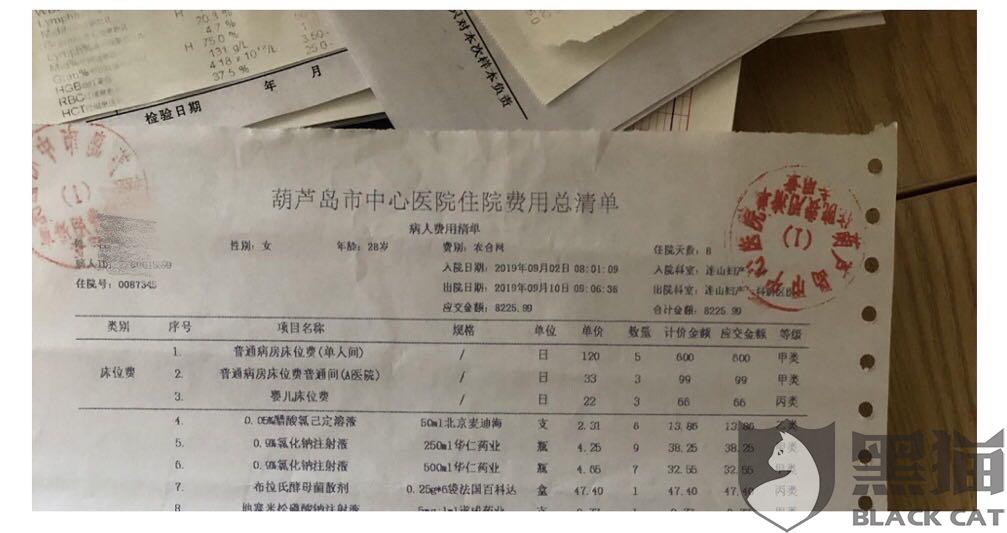 20.3 %
4.7 %
H 75.0 %
HGB 131 g/L
RBC 4.18 x 10^12/L
HCT 37.5 %
3.50-
25.0-
检验日期 年 月
对本次样本负责
葫芦岛市中心医院住院费用总清单
病人费用清单
性别: 女 年龄: 28岁 费别: 农合网 住院天数: 8
病人ID 入院日期: 2019年09月02日 08:01:09 入院科室: 连山妇产
住院号: 0087345 出院日期: 2019年09月10日 09:06:36 出院科室: 连山妇产
应交金额: 8225.99 合计金额: 8225.99
类别 序号 项目名称 规格 单位 单价 数量 计价金额 应交金额 等级
1. 普通病房床位费(单人间) / 日 120 5 600 600 甲类
床位费 2. 普通病房床位费普通间(A医院) / 日 33 3 99 99 甲类
3. 婴儿床位费 / 日 22 3 66 66 丙类
4. 0.05%醋酸氯己定溶液 50ml北京麦迪海 支 2.31 6 13.86 13.86 乙类
5. 0.9%氯化钠注射液 250ml华仁药业 瓶 4.25 9 38.25 38.25
6. 0.9%氯化钠注射液 500ml华仁药业 瓶 4.65 7 32.55 32.55
7. 布拉氏酵母菌散剂 0.25g*6袋法国百科达 盒 47.40 1 47.40 47.40 丙类
8 地塞米松磷酸钠注射液
黑猫
BLACK CAT